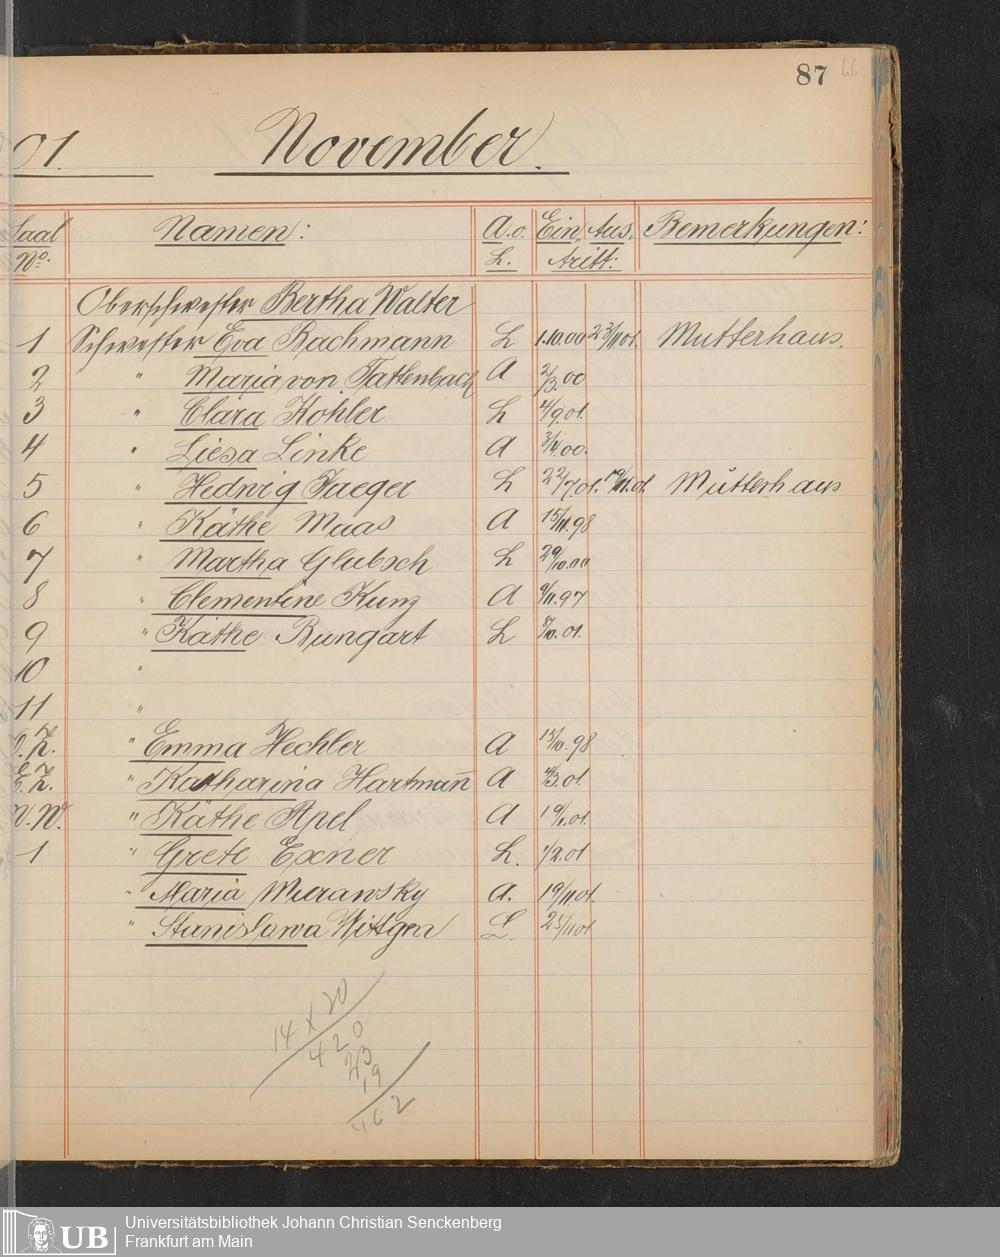 87 66
01. November.
Saal Namen: A. o. Ein Aus Bemerkungen:
No. L. tritt:
Oberschwester Bertha Walter
1 Schwester Eva Rachmann L 1.10.00 23/11 01. Mutterhaus.
2 " Maria von Tattenbach A 2/3.00
3 " Clara Kohler L 4/9.01.
4 " Liesa Linke A 3/4.00.
5 " Hedwig Jaeger L 22/7 01. 19/11.01. Mutterhaus
6 " Käthe Maas A 15/11.98
7 " Martha Glubsch L 29/10.00
8 " Clementine Kunz A 9/11.97
9 " Käthe Bungart L 8/10.01.
10 "
11 "
" Emma Hechler A 15/10.98
" Katharina Hartmann̄ A 4/3.01.
" Käthe Apel A 19/1.01.
1 " Grete Exner L. 1/2.01
" Maria Murawsky A. 19/11 01.
" Stanislawa Wittgen L. 25/11 01
14 x 30
420
23
19
462
UB Universitätsbibliothek Johann Christian Senckenberg
Frankfurt am Main